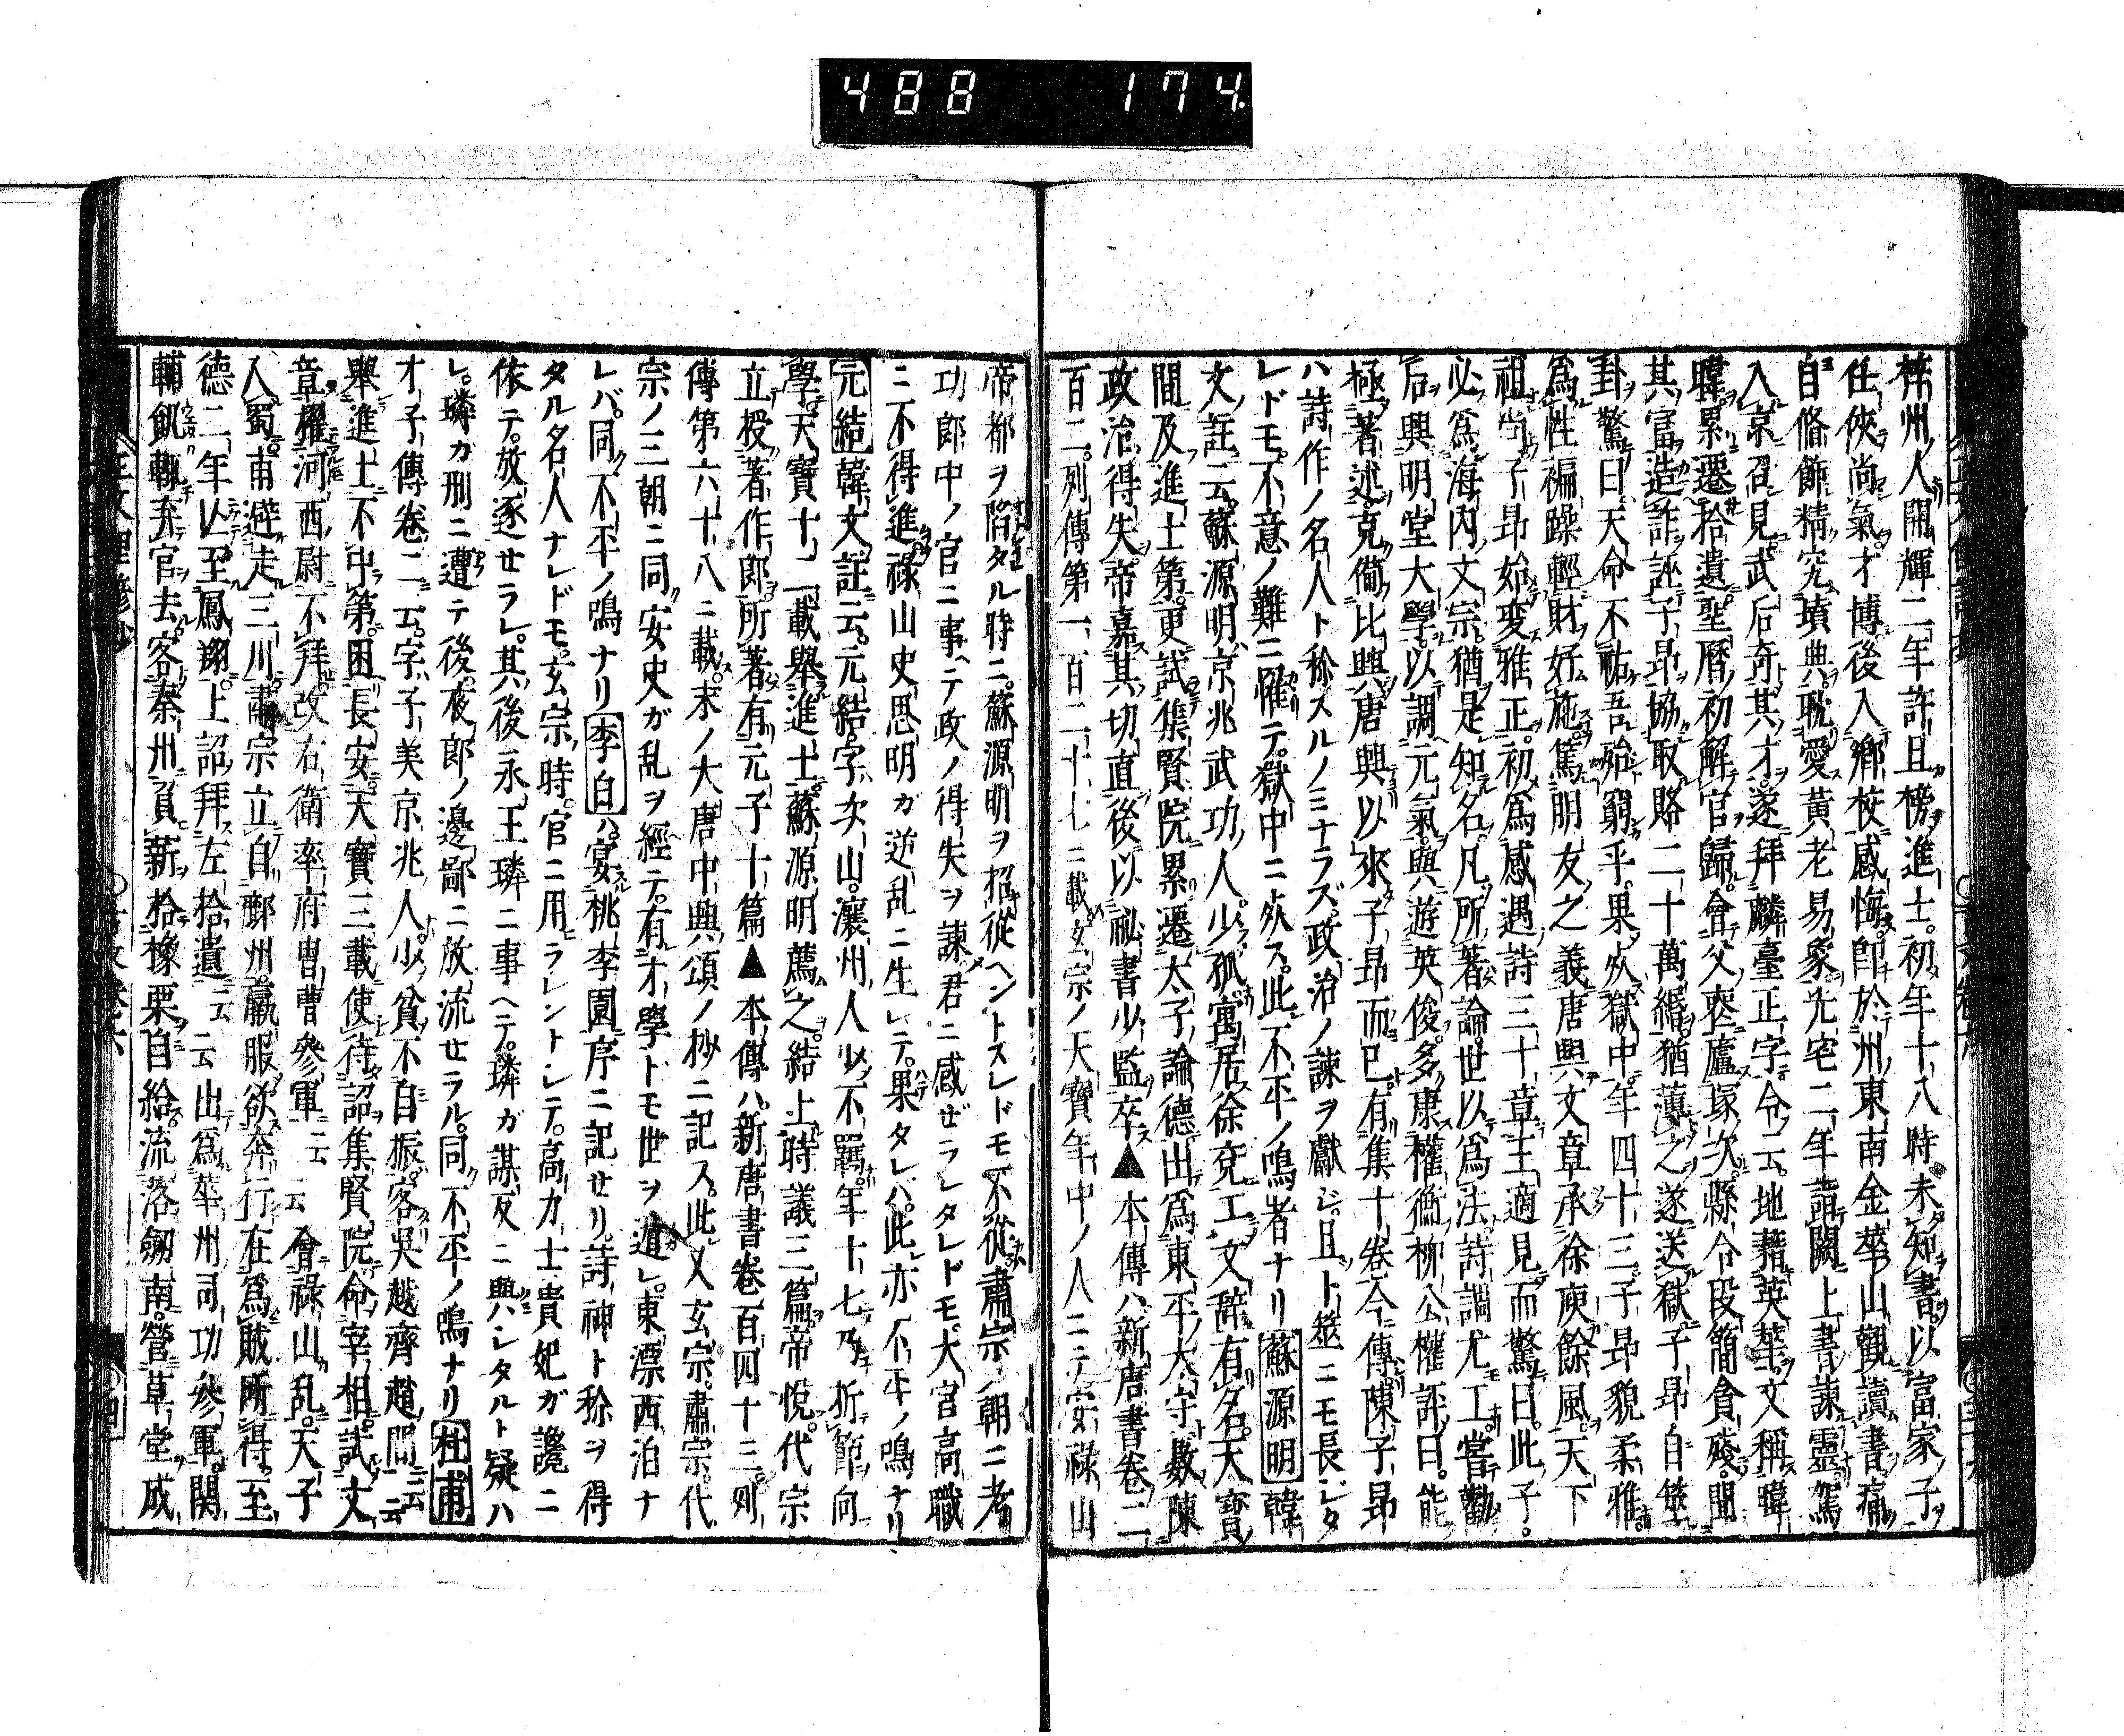 488 174
梓州人開輝二年許且榜進士初年十八時未知書以富家子
任俠尚氣才博後入鄉校感悔即於洲東南金華山觀讀書痛
自脩飾精究墳典耽愛黃老易象光宅二年詣闕上書諫靈駕
入京召見武后奇其才遂拜麟臺正字令云地籍英華文稱暐
暐累遷拾遺聖曆初解官歸會父喪廬塚次縣令段簡貪殘聞
其富造詐誣子昂協取賂二十萬緡猶薄之遂送獄子昂自筮
卦驚曰天命不祐吾殆窮乎果死獄中年四十三子昂貌柔雅
爲性褊躁輕財好施篤朋友之義唐興文章承徐庾餘風天下
祖尚子昂始変雅正初爲感遇詩三十章王適見而驚曰此子
必爲海內文宗猶是知名凡所著論世以爲法詩調尤工當勸
后興明堂大學以調元氣與遊英俊多康權衡柳公權評曰能
極著述克備比興唐興以來子昂而已有集十卷今傳陳子昂
ハ詩作ノ名人ト称スルノミナラズ政治ノ諫ヲ獻ジ且卜筮ニモ長ジタ
レドモ不意ノ難ニ罹テ獄中ニ死ス此不平ノ鳴者ナリ蘇源明韓
文註云蘇源明京兆武功人少孤寓居徐兗工文辭有名天寶
間及進士第更試集賢院累遷太子諭德出爲東平太守數陳
政治得失帝嘉其切直後以祕書少監卒▲本傳ハ新唐書卷二
百二列傳第一百二十七ニ載玄宗ノ天寶年中ノ人ニテ安祿山
帝都ヲ陷タル時ニ蘇源明ヲ招從ヘントスレドモ不從肅宗ノ朝ニ考
功郎中ノ官ニ事ヘテ政ノ得失ヲ諫君ニ感ゼラレタレトモ大官高職
ニ不得進祿山史思明カ逆乱ニ生レテ果タレハ此亦不平ノ鳴ナリ
元結韓文註云元結字次山瀼州人少不羈年十七乃折節向
學天寶十二載舉進士蘇源明薦之結上時議三篇帝悅代宗
立授著作郎所著有元子十篇▲本傳ハ新唐書卷百四十三列
傳第六十八ニ載末ノ大唐中興頌ノ抄ニ記ス此又玄宗肅宗代
宗ノ三朝ニ同安史ガ乱ヲ經テ有才學ドモ世ヲ遁レ東漂西泊ナ
レバ同不平ノ鳴ナリ李白ハ宴桃李園序ニ記セリ詩神ト称ヲ得
タル名人ナレドモ玄宗時官ニ用ラレントシテ高力士貴妃ガ讒ニ
依テ放逐セラレ其後永王璘ニ事ヘテ璘ガ謀反ニ與シタルト疑ハ
レ璘カ刑ニ遭テ後夜郎ノ邊鄙ニ放流セラル同不平ノ鳴ナリ杜甫
才子傳卷二云字子美京兆人少貧不自振客吳越齊趙間云云
舉進士不中第困長安天寶三載使待詔集賢院命宰相試文
章擢河西尉不拜改右衛率府冑曹參軍云云會祿山乱天子
入蜀甫避走三川肅宗立自鄜州羸服欲奔行在爲賊所得至
德二年亾至鳳翔上詔拜左拾遺云云出爲華州司功參軍関
輔飢輙弃官去客秦州負薪拾橡栗自給流落劔南營草堂成